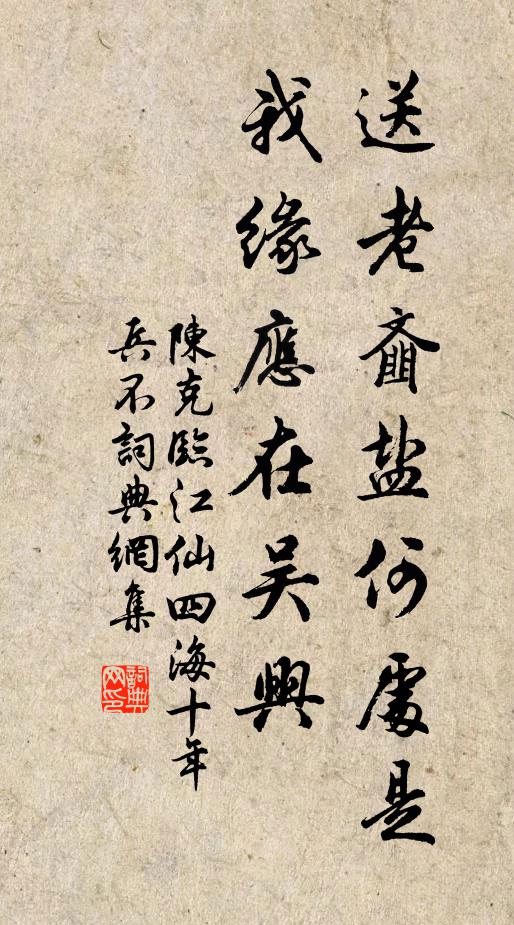 送老齑盐何處是
我緣應在吴興
陳克臨江仙四海十年
兵不詞典網集
詞典
网印